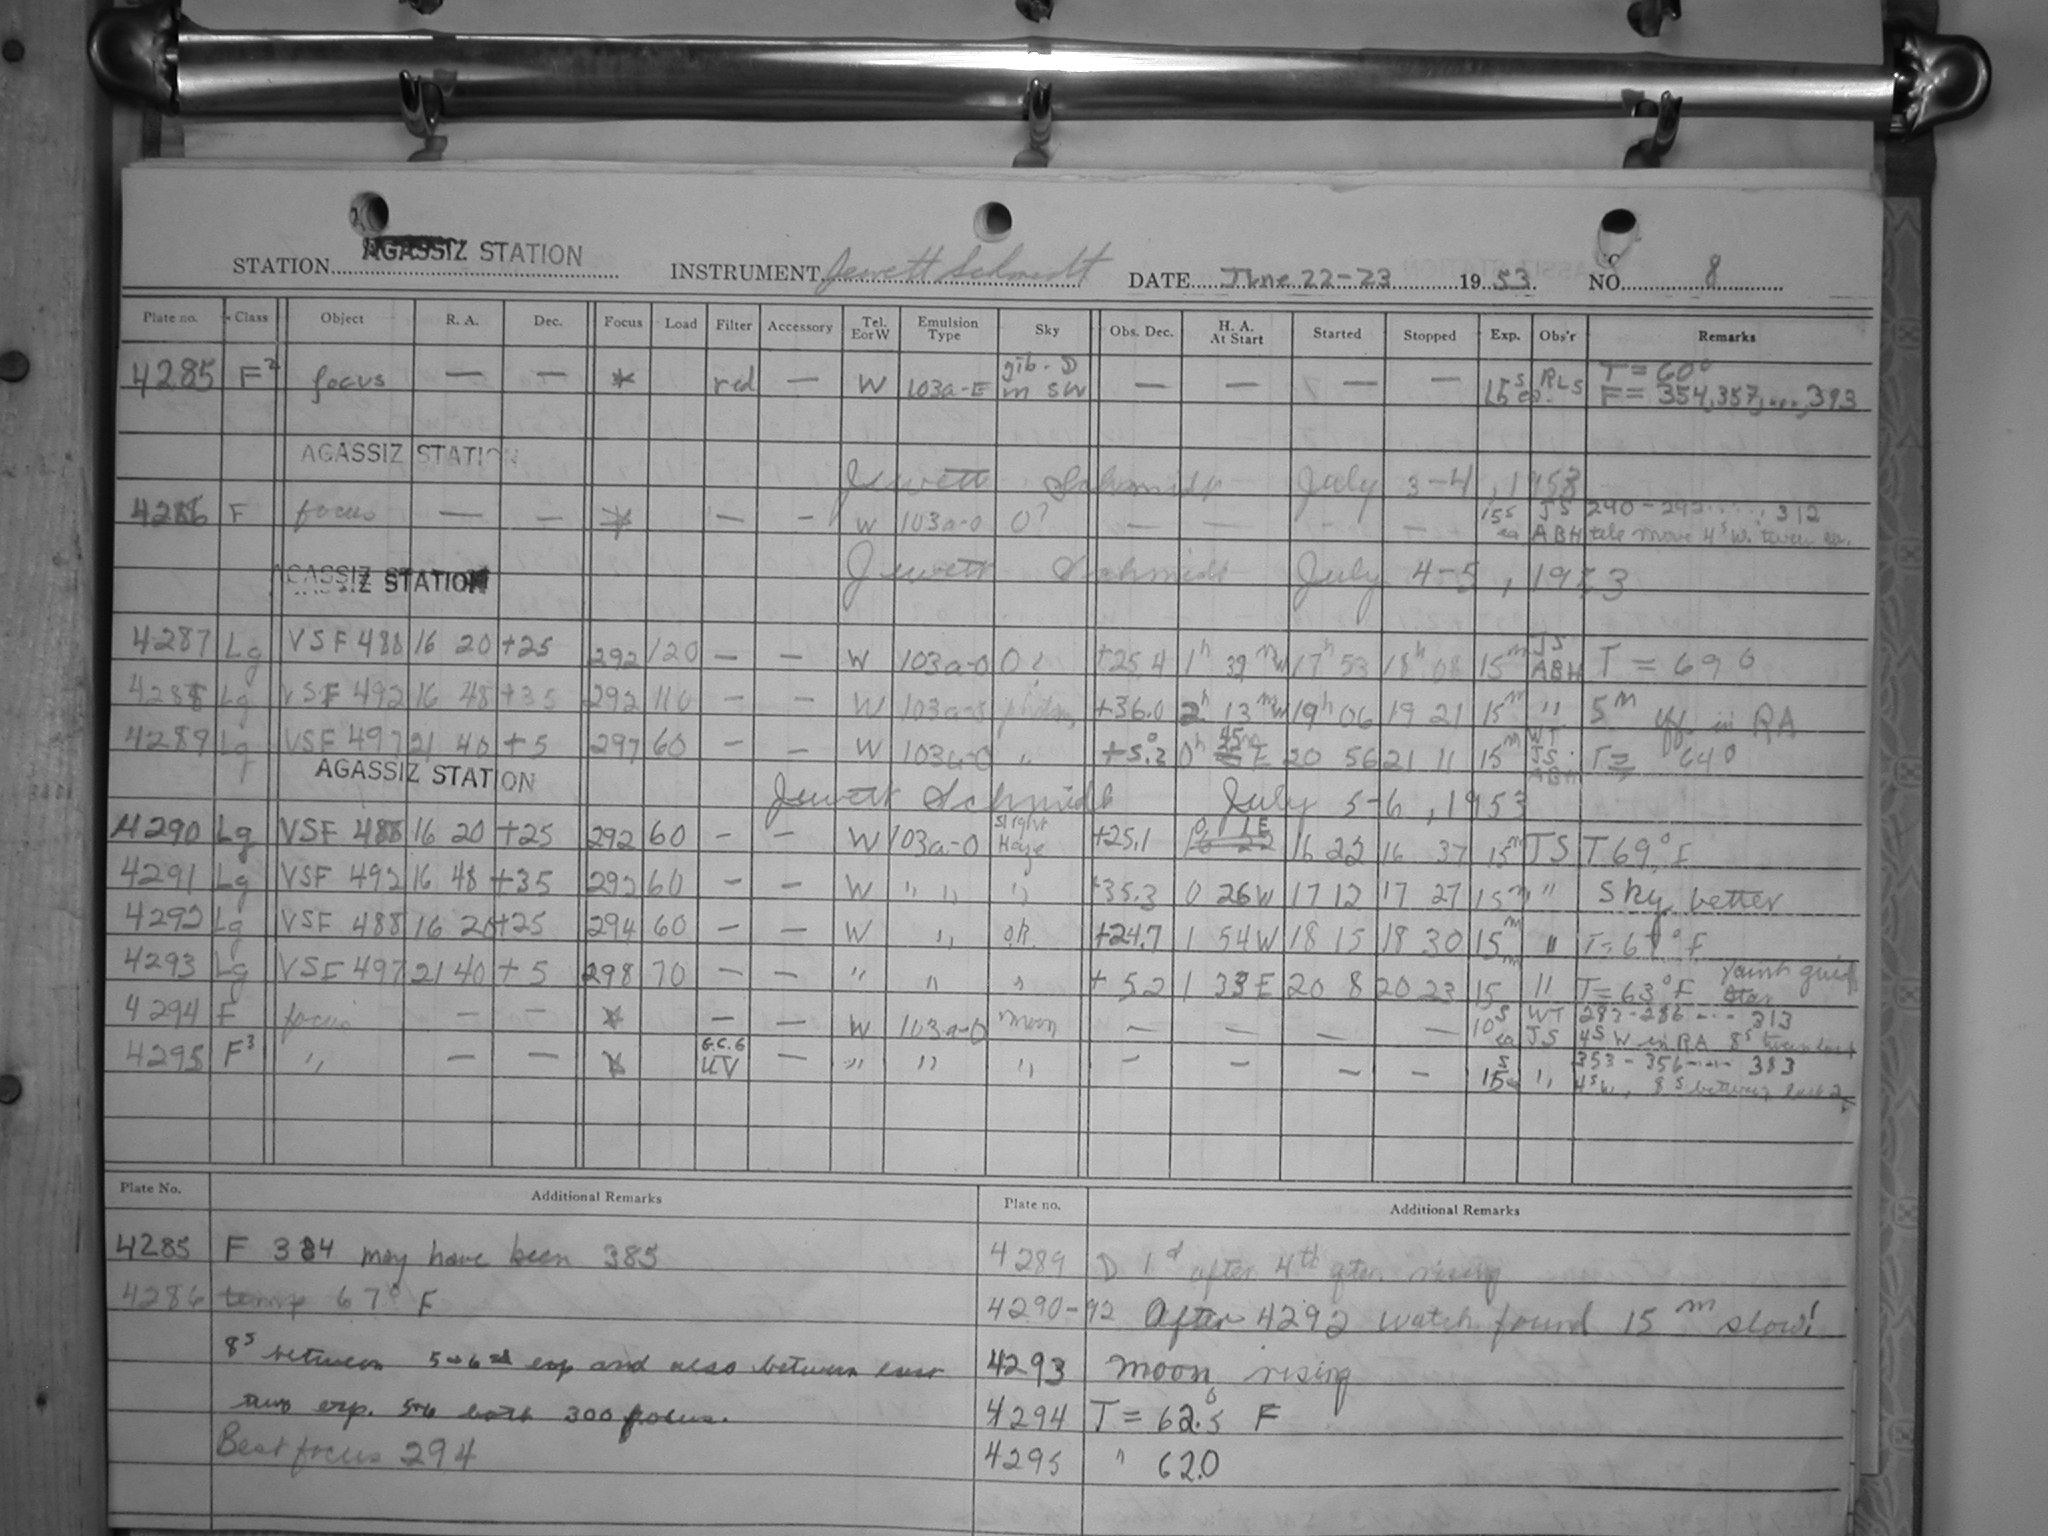 STATION AGASSIZ STATION INSTRUMENT Jewett Schmidt DATE June 22-23 1953. NO. 8
Plate no. Class Object R. A. Dec. Focus Load Filter Accessory Tel. E or W Emulsion Type Sky Obs. Dec. H. A. At Start Started Stopped Exp. Obs'r Remarks
4285 F² focus — — * red — W 103a-E gib. D in SW — — — — 15s ea. RLS T = 60° F = 354, 357, ..., 393
AGASSIZ STATION Jewett Schmidt July 3-4, 1953
4286 F focus — — * — - W 103a-0 0? — — — — 15s ea JS ABH 290-292 ..... 312 tele move 4s W. tween ea.
AGASSIZ STATION Jewett Schmidt July 4-5, 1953
4287 Lg VSF 488 16 20 +25 292 120 — — W 103a-0 0? +25.4 1h 39m W 17h 53 18h 08 15m JS ABH T = 69°
4288 Lg VSF 492 16 48 +35 292 110 - - W 103a-0 +36.0 2h 13m W 19h 06 19 21 15m " 5m off in RA
4289 Lg VSF 497 21 40 +5 297 60 - — W 103a-0 " +5.2 0h 45 E 20 56 21 11 15m WT JS ABH T = 64°
AGASSIZ STATION Jewett Schmidt July 5-6, 1953
4290 Lg VSF 488 16 20 +25 292 60 - — W 103a-0 slight Haze +25.1 0 1E 16 22 16 37 15m JS T 69°F
4291 Lg VSF 492 16 48 +35 292 60 - — W " " " +35.3 0 26W 17 12 17 27 15m " Sky better
4292 Lg VSF 488 16 20 +25 294 60 — — W " ok. +24.7 1 54W 18 15 18 30 15m " T = 67°F
4293 Lg VSF 497 21 40 +5 298 70 — — " " " +5.2 1 33E 20 8 20 23 15m " T = 63°F faint guide star
4294 F focus - - * — — W 103a-0 moon — — — — 10s ea WT JS 283-286 --- 313 4s W in RA 8s tween last
4295 F³ " — — * G.C.6 UV — " " " - - — - 15s ea " 353-356 ---- 383 4s W, 8s between last 2
Plate No. Additional Remarks Plate no. Additional Remarks
4285 F 384 may have been 385
4286 temp 67° F
8s between 5 & 6 exp and also between last
two exp. 5+6 both 300 focus.
Best focus 294
4289 D 1d after 4th qter rising
4290-92 After 4292 watch found 15m slow!
4293 moon rising
4294 T = 62.5° F
4295 " 62.0